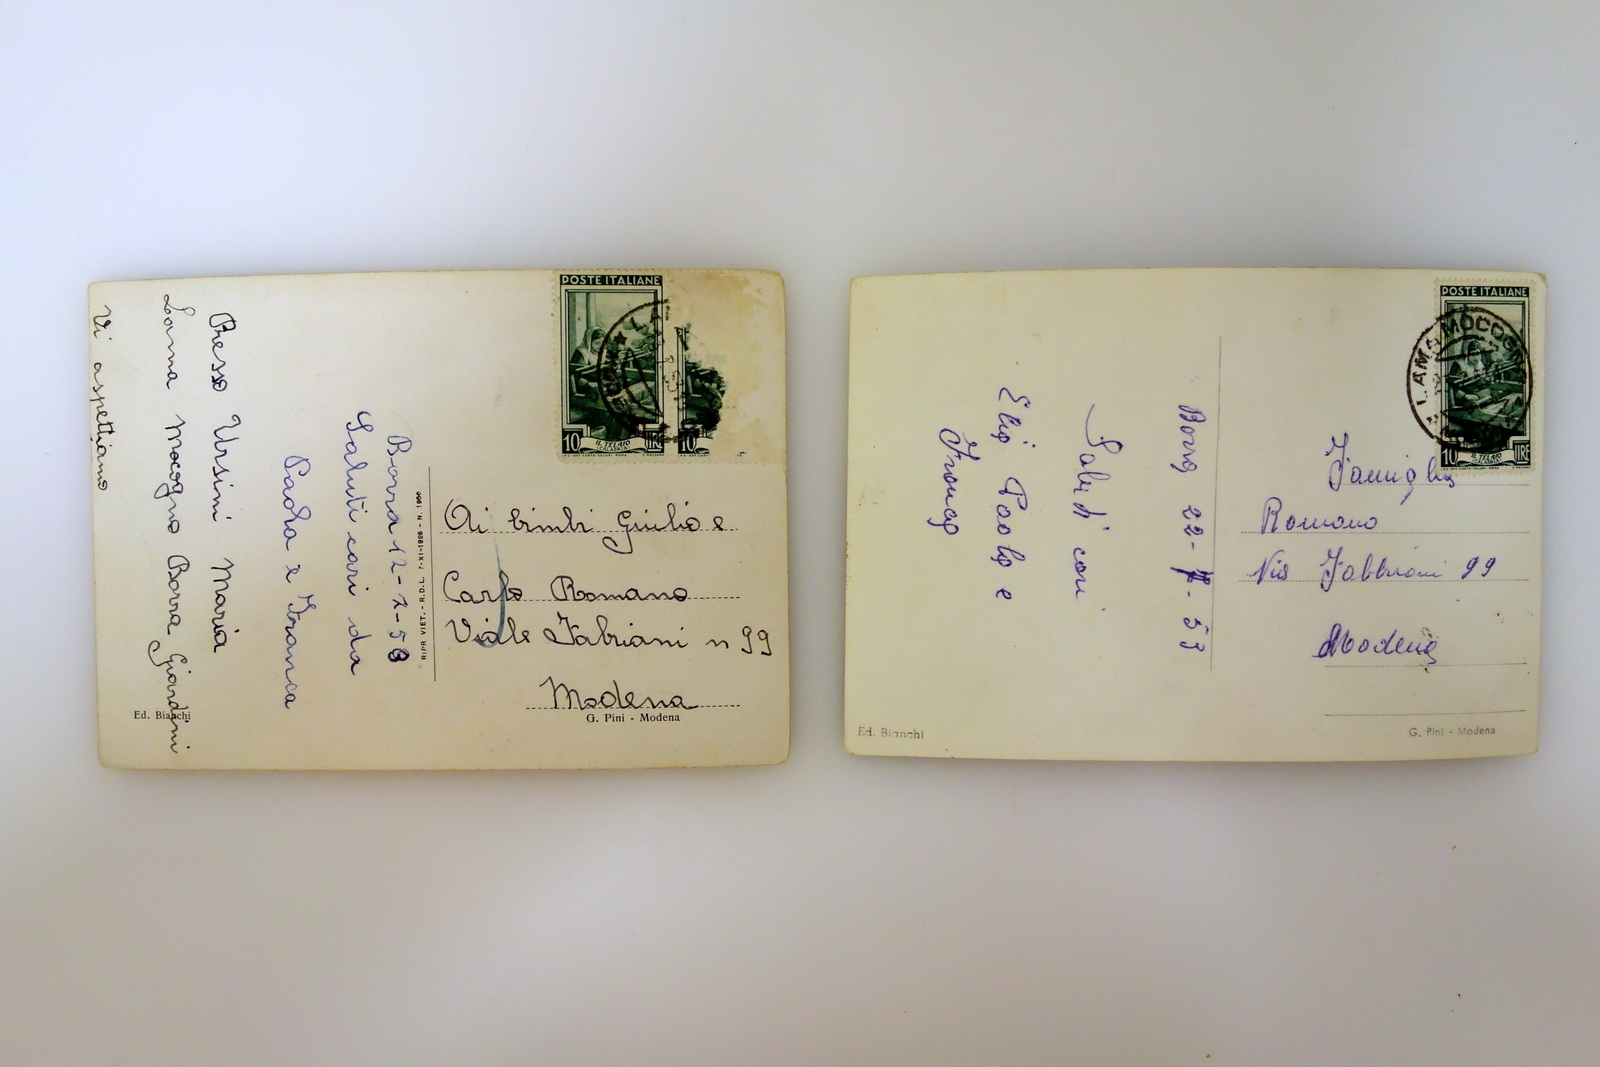 POSTE ITALIANE
10 IL TELAIO LIRE
10
Borra 12-7-53
Saluti cari da
Paola e Franca
Presso Ursini Maria
Lama Mocogno Borra Giardini
Vi aspettiamo
RIPR VIET. - R.D.L. 7-XI-1926 - N. 1950
Ai bimbi Giulio e
Carlo Romano
Viale Fabriani n 99
Modena
Ed. Bianchi
G. Pini - Modena
POSTE ITALIANE
LAMA MOCOGNO
10 IL TELAIO LIRE
Borra 22-7-53
Saluti cari
Elia Paola e
Franca
Famiglia
Romano
Via Fabbriani 99
Modena
Ed. Bianchi
G. Pini - Modena